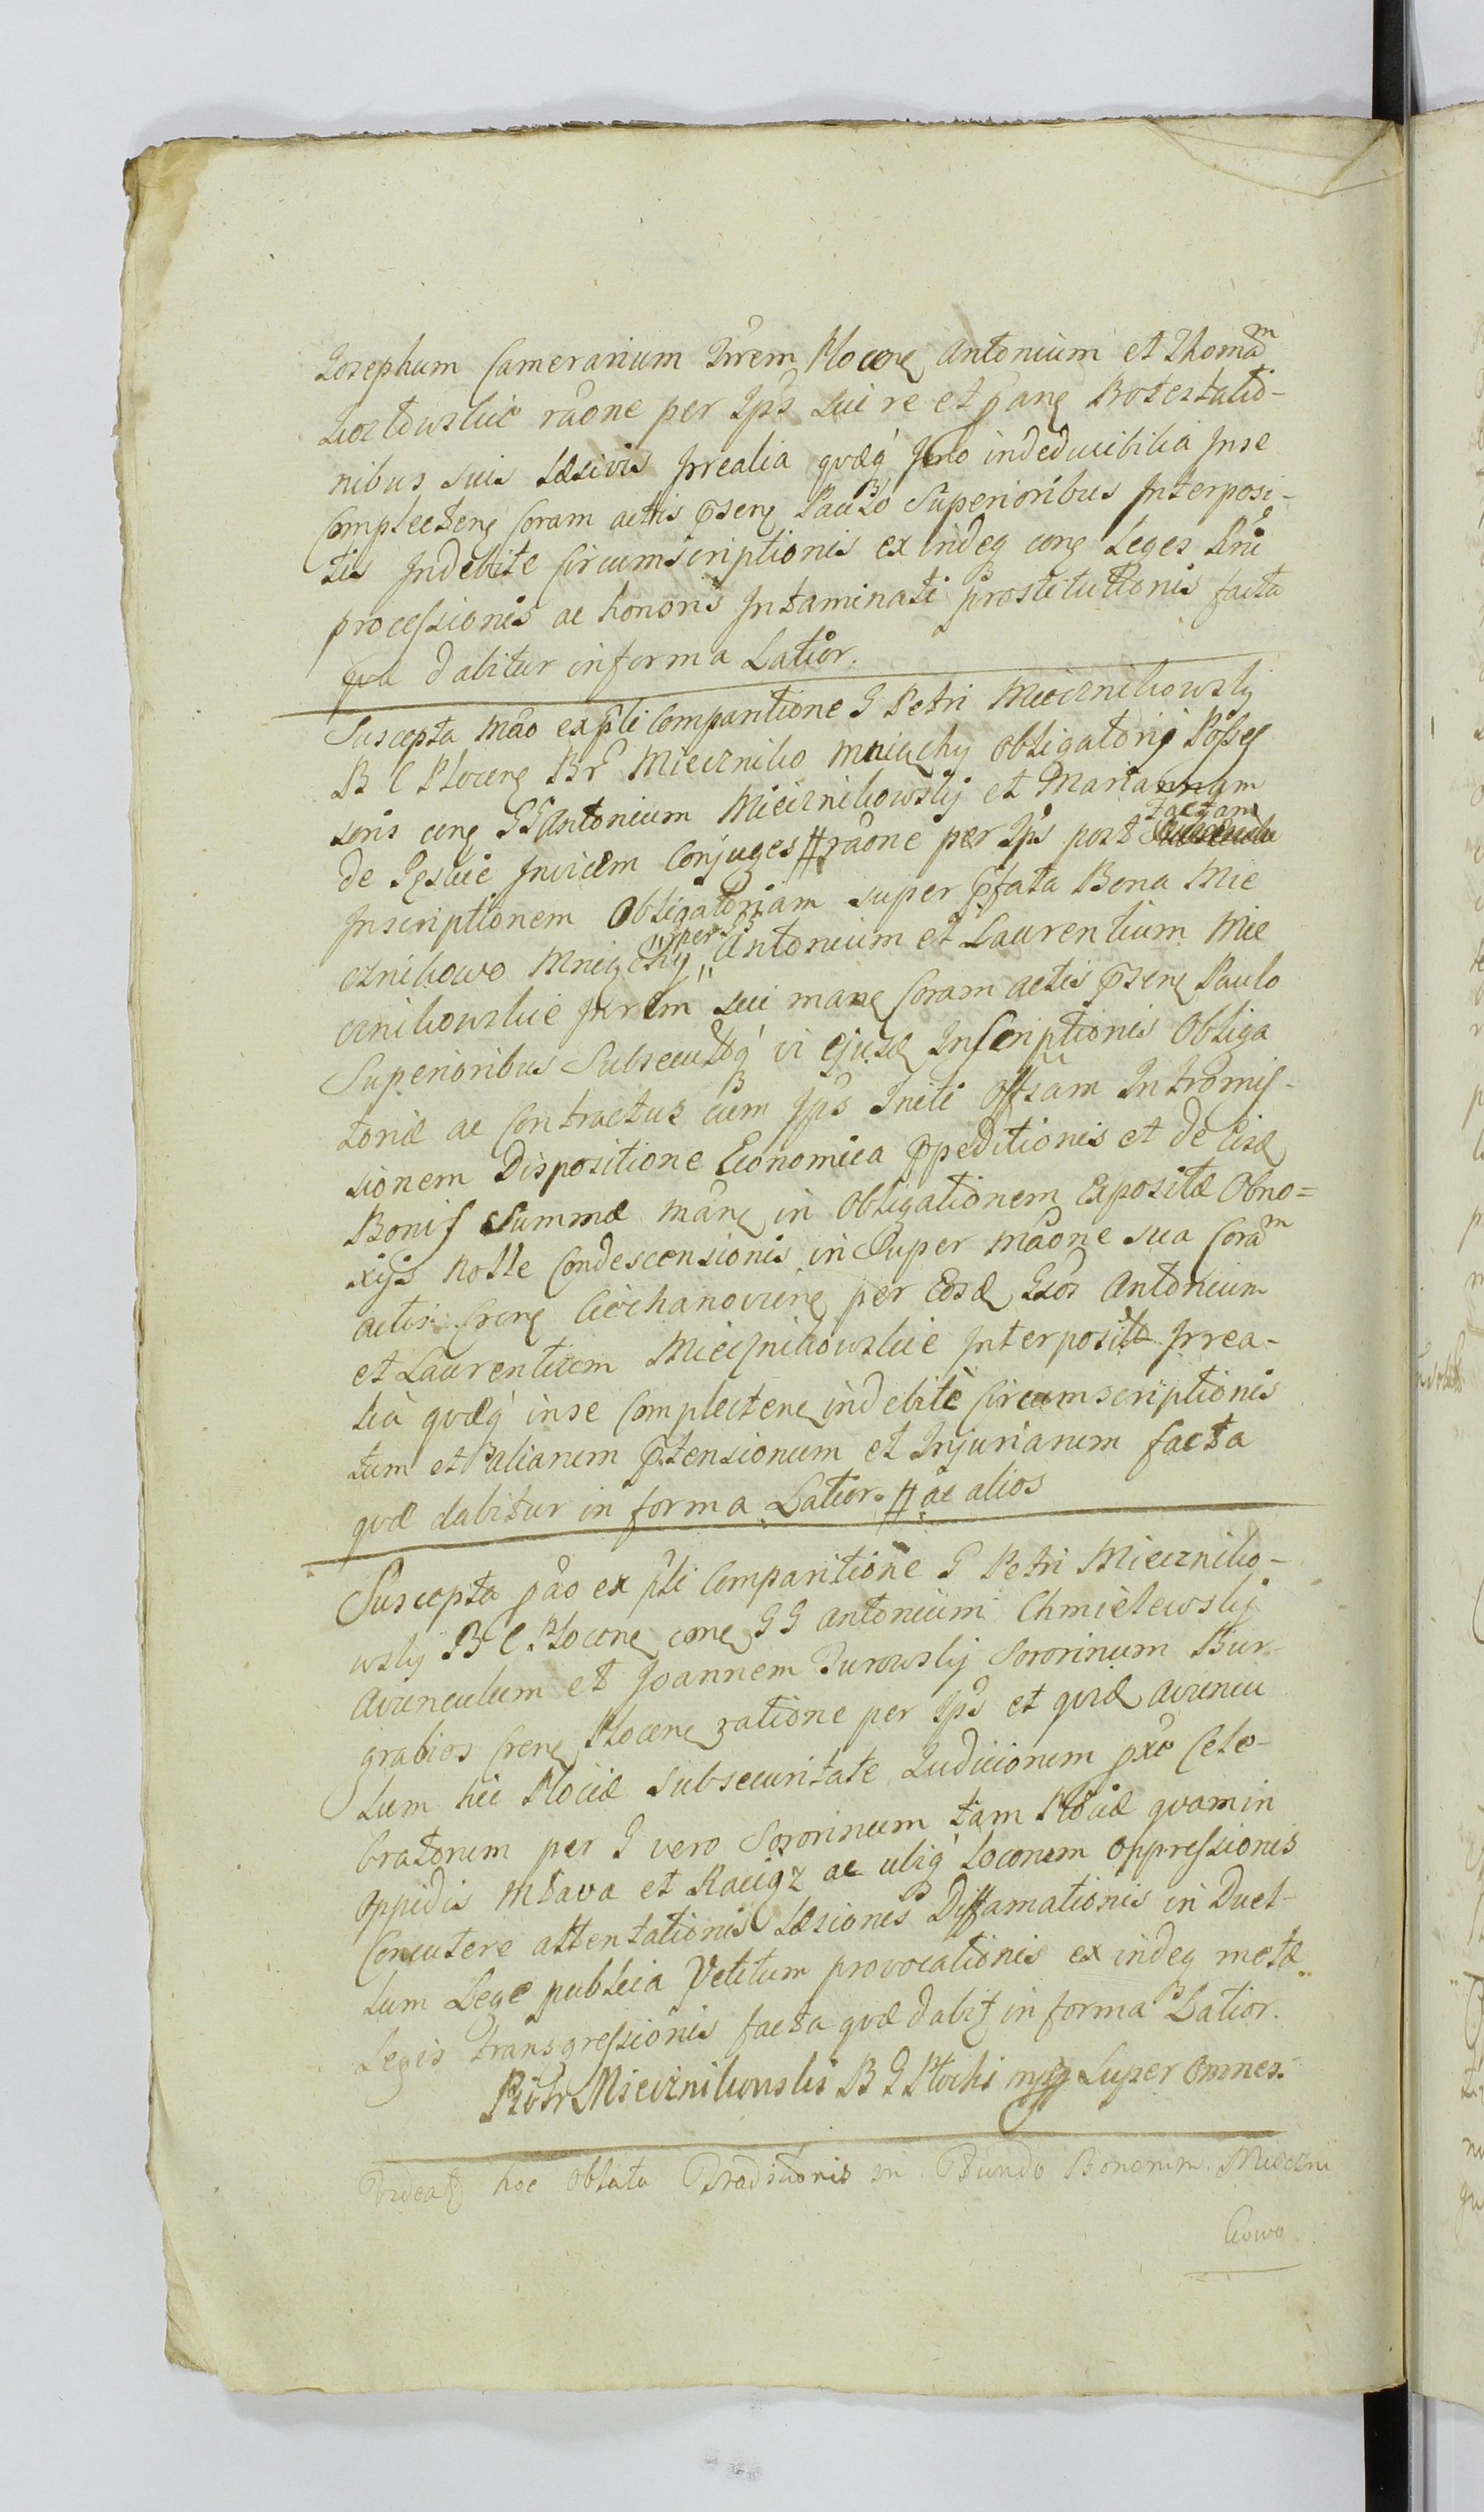 Josephum Camerarium Trrem Plocen Antonium et Thomam
Kozłowskie raone per Ips sui re et pane Protestatio-
nibus suis Læsivis Irrealia quæq Jmo indeducibilia Inse
Complecten Coram actis prsen Paulo Superioribus Interposi-
tis Indebite Circumscriptionis ex indeq con Leges
processionis ac honoris Intaminati prostitutionis facta
quæ dabitur in forma Latior.
Suscepta mão ex prli Comparitione G Petri Miecznikowsky
B C Plocen Br Miecznikowo Mniuchy obligatorij Posses
soris con GG Antonium Miecznikowskij et Mariannam
de Inviem Conjuges # raone per Ips post factam
Inscriptionem Obligatoriam super prfata Bona Mie
cznikowo Mniuchy " per GG " Antonium et Laurentium Mie
cznikowskie Jurem sui man Coram actis prsen Paulo
Superioribus Subsecutoq vi ejusd Inscriptionis Obliga
toriæ ac Contractus cum Ips Initi Offsam Intromis-
sionem Dispositione Economica ppeditionis et de Eisd
Bonis Summæ man in Obligationem Expositæ Obno=
xijs Nolle Condescensionis in Super mãone sua Coram
actis Cren Ciechanovien per Eosd GGos Antonium
et Laurentium Miecznikowskie Interposita Irrea-
lia quæq inse Complecten indebitè Circumscriptionis
tum et aliarum prtensionum et Injuriarum facta
quæ dabitur in forma Latior. # ac alios
Suscepta pão ex prli Comparitione G Petri Miecznilko-
wsky B C Plocen con GG Antonium Chmielewskij
Avunculum et Joannem Turowskij Sororinum Bur-
grabios Cren Plocen ratione per Ips et quid Avuncu
lum hic Plociæ Subsecuritate Judiciorum Cele-
bratorum per G vero Sororinum tam Plociæ quam in
Oppidis Mława et Raciąz ac ubiq Locorum oppressionis
Concutere attentationis Læsionis Diffamationis in Duel-
lum Lege publica Vetitum provocationis ex indeq motæ
Legis transgressionis facta quæ dabit in forma Latior.
Piotr Miecznikowski B G Płocki mpp Super omnes.
Videat hoc Oblata Traditionis in Fundo Bonorum Mieczni
kowo